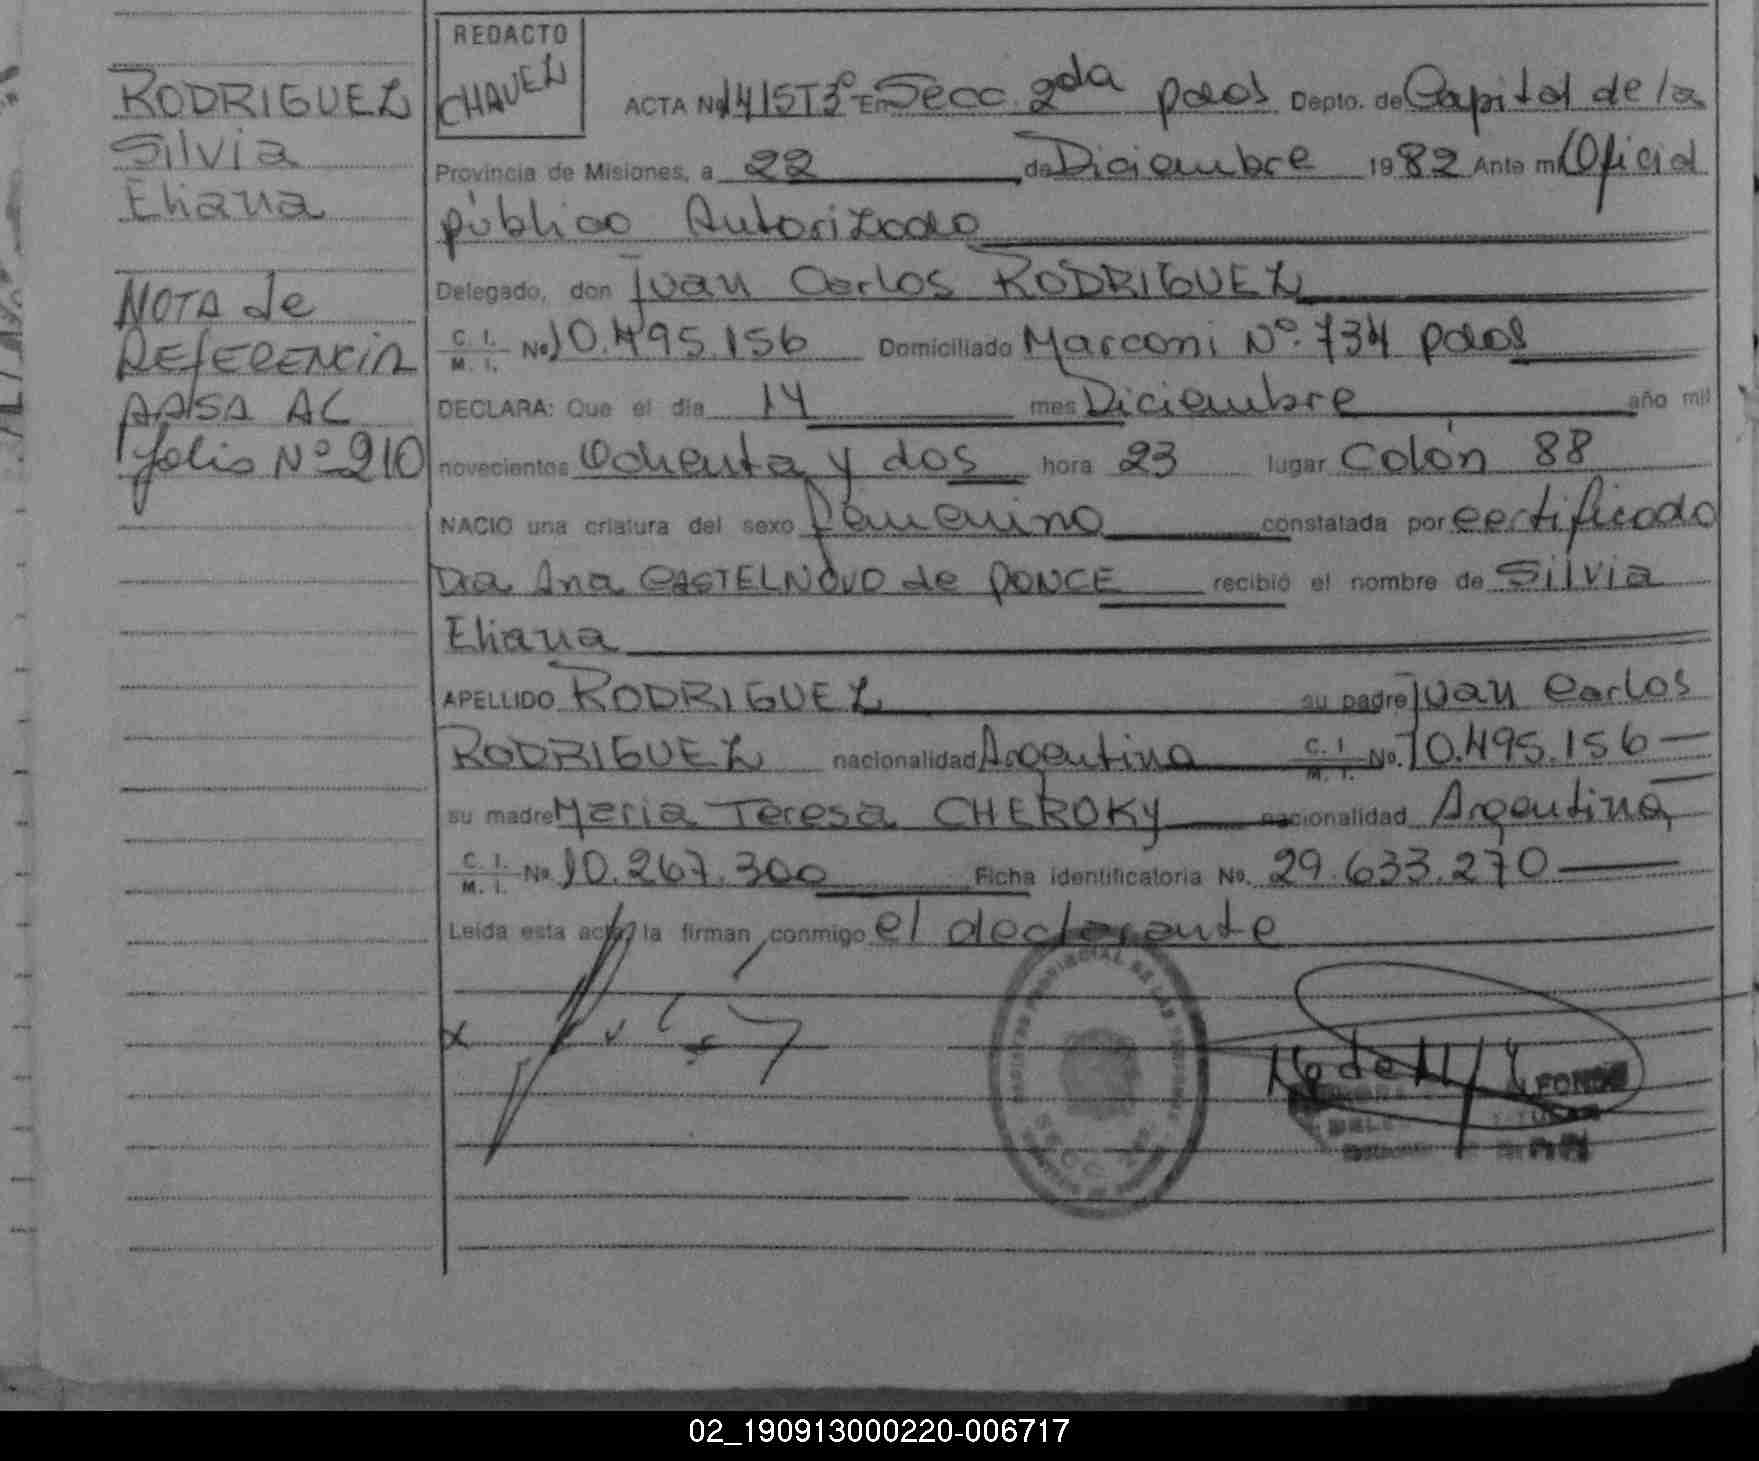 RODRIGUEZ
Silvia
Eliana
NOTA de
REFERENCIA
PASA AL
folio Nº 210
REDACTO
CHAVEZ
ACTA Nº 1415T3º En Secc. 2da pdas Depto. de Capital de la
Provincia de Misiones, a 22 de Diciembre 1982 Ante mi Oficial
público Autorizado
Delegado, don Juan Carlos RODRIGUEZ
C. I. M. I. Nº 10.495.156 Domiciliado Marconi Nº 734 pdas
DECLARA: Que el día 14 mes Diciembre año mil
novecientos Ochenta y dos hora 23 lugar Colón 88
NACIO una criatura del sexo femenino constatada por certificado
Dra Ana CASTELNOVO de PONCE recibió el nombre de Silvia
Eliana
APELLIDO RODRIGUEZ su padre Juan Carlos
RODRIGUEZ nacionalidad Argentina C. I. M. I. No. 10.495.156
su madre Maria Teresa CHEROKY nacionalidad Argentina
C. I. M. I. No. 10.267.300 Ficha identificatoria No. 29.633.270
Leída esta acta, la firman conmigo el declarante
02_190913000220-006717